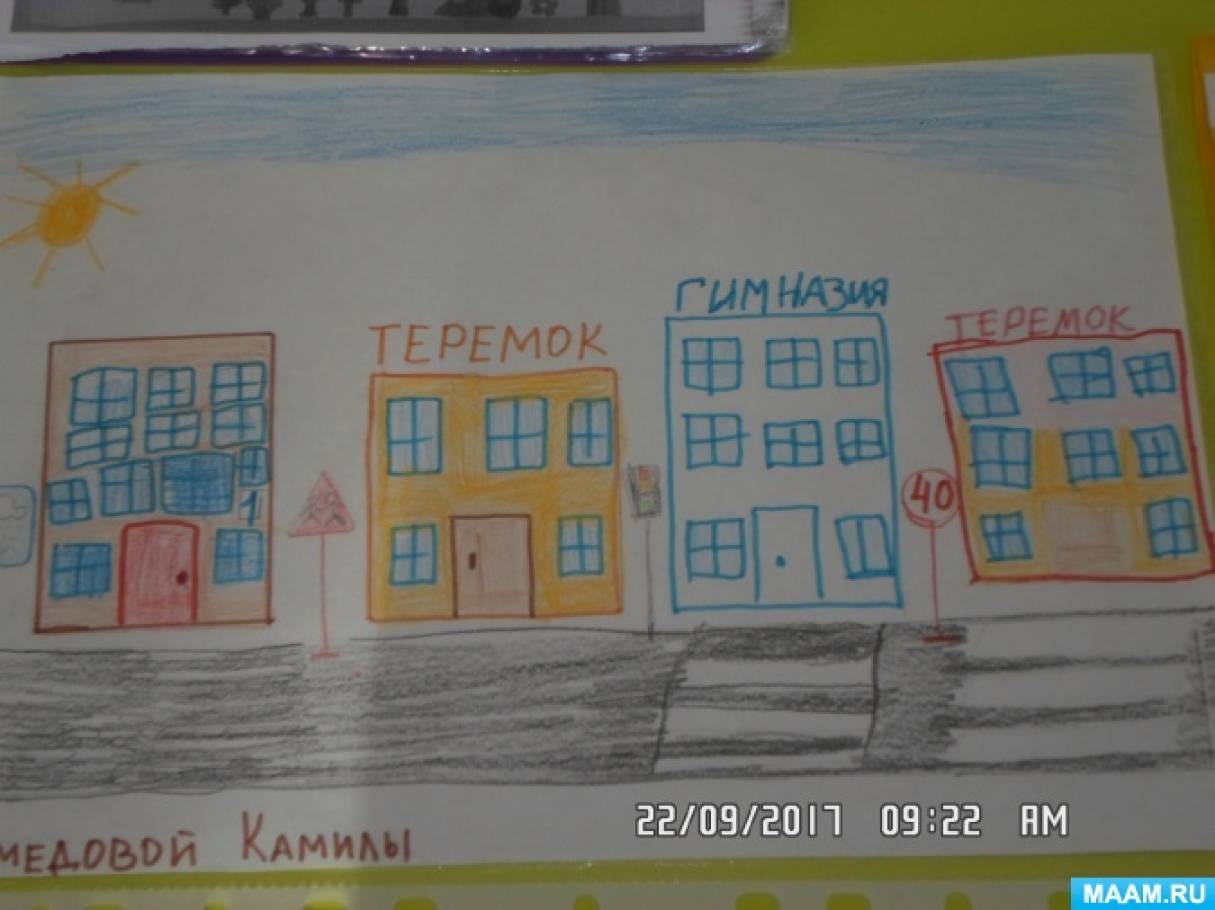 ГИМНАЗИЯ
ТЕРЕМОК
ТЕРЕМОК
40
1
МЕДОВОЙ КАМИЛЫ
22/09/2017 09:22 AM
MAAM.RU